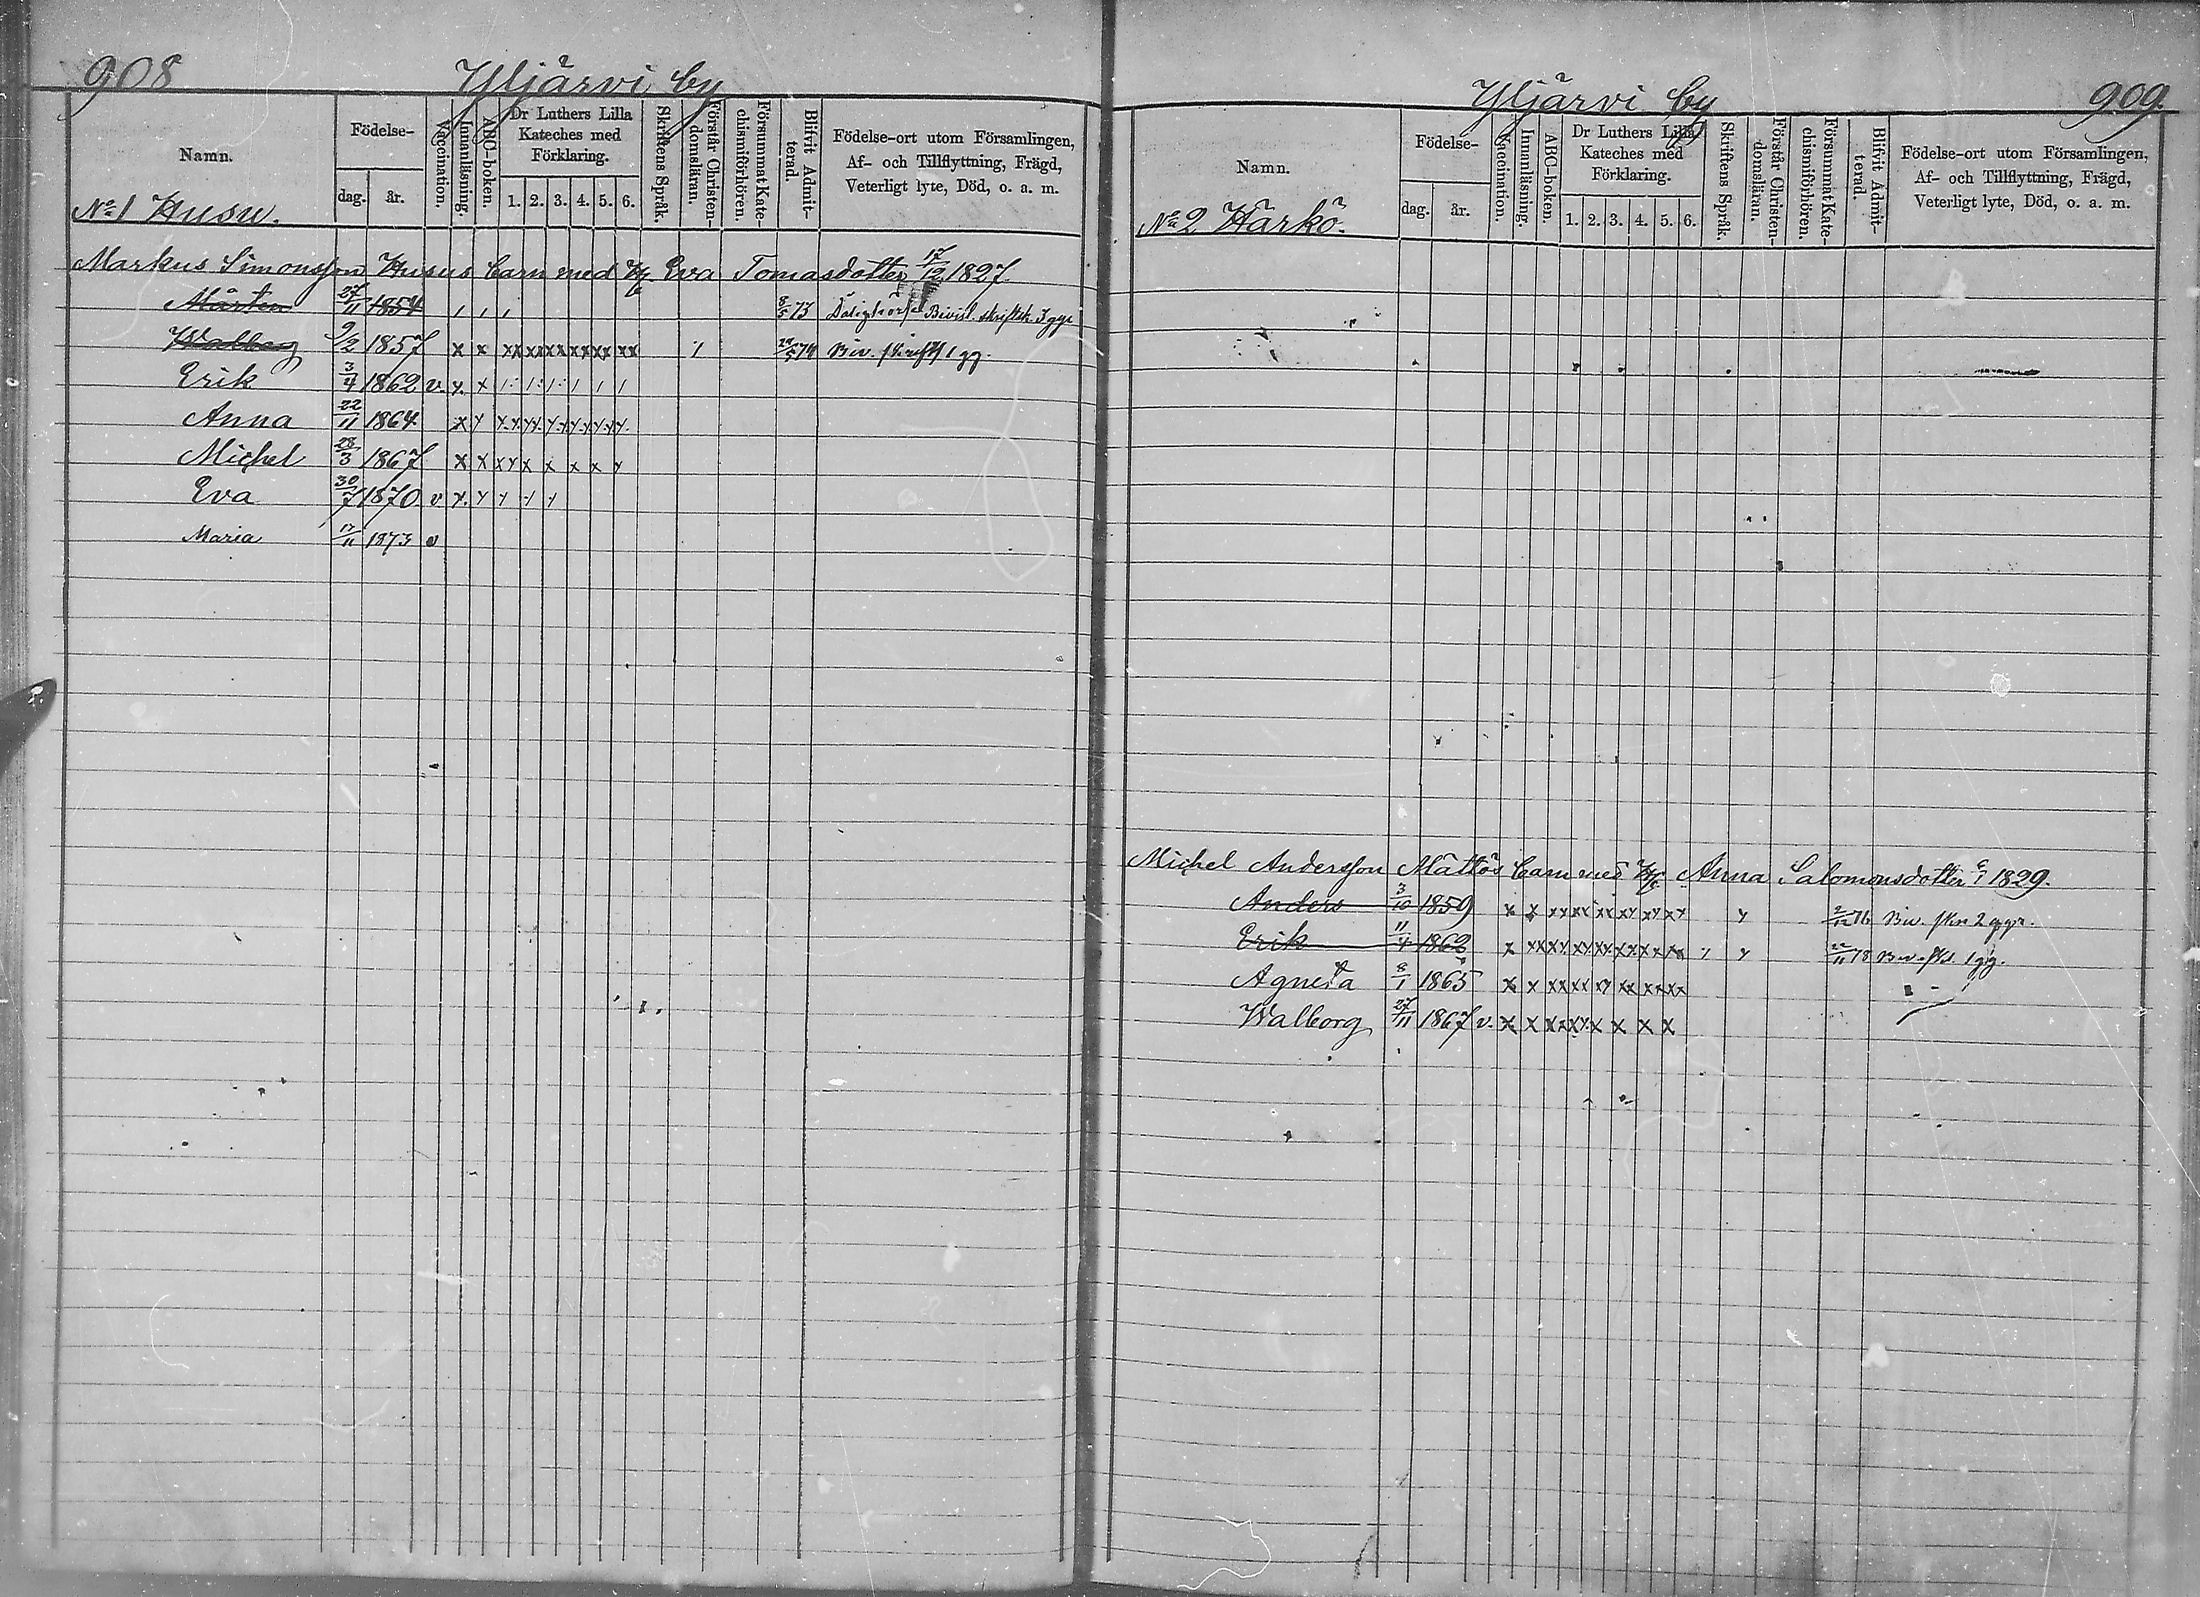 908
Yljärvi by
Namn.
Födelse-
dag.
år.
Vaccination.
Innanläsning.
ABC-boken.
Dr Luthers Lilla
Kateches med
Förklaring.
1. 2. 3. 4. 5. 6.
Skriftens Språk.
Förstår Christen-
domsläran.
Försummat Kate-
chismiförhören.
Blifvit Admit-
terad.
Födelse-ort utom Församlingen,
Af- och Tillflyttning, Frägd,
Veterligt lyte, Död, o. a. m.
No 1 Husu.
Markus Simonsson Husus barn med H. Eva Tomasdotter 17/12 1827
Mårten 27/11 1854 8/5 73 Bivist. skriftsk. 3 ggr
Walborg 9/2 1857 x x xx xx xx xx xx xx 74 Biv. 1 gg.
Erik 3/4 1862 v. x x
Anna 22/11 1864
Michel 28/3 1867 x x x x x x x x x
Eva 30/7 1870 v
Maria 17/11 1873 v
Yljärvi by
909.
Namn.
Födelse-
dag.
år.
Vaccination.
Innanläsning.
ABC-boken.
Dr Luthers Lilla
Kateches med
Förklaring.
1. 2. 3. 4. 5. 6.
Skriftens Språk.
Förstår Christen-
domsläran.
Försummat Kate-
chismiförhören.
Blifvit Admit-
terad.
Födelse-ort utom Församlingen,
Af- och Tillflyttning, Frägd,
Veterligt lyte, Död, o. a. m.
No 2 Härkö.
Michel Andersson Mättös barn med H. Anna Salomonsdotter 1829.
Anders 3/10 1859 x x xx xx xx xx xx xx 2/12 76 Biv. skr. 2 ggr.
Erik 11/4 1862 x xx xx xx xx xx xx 22/11 78 Biv. 1 gg.
Agneta 8/1 1865 x x xx xx xx xx xx xx
Walborg 27/11 1867 v. x x x x x x x x x